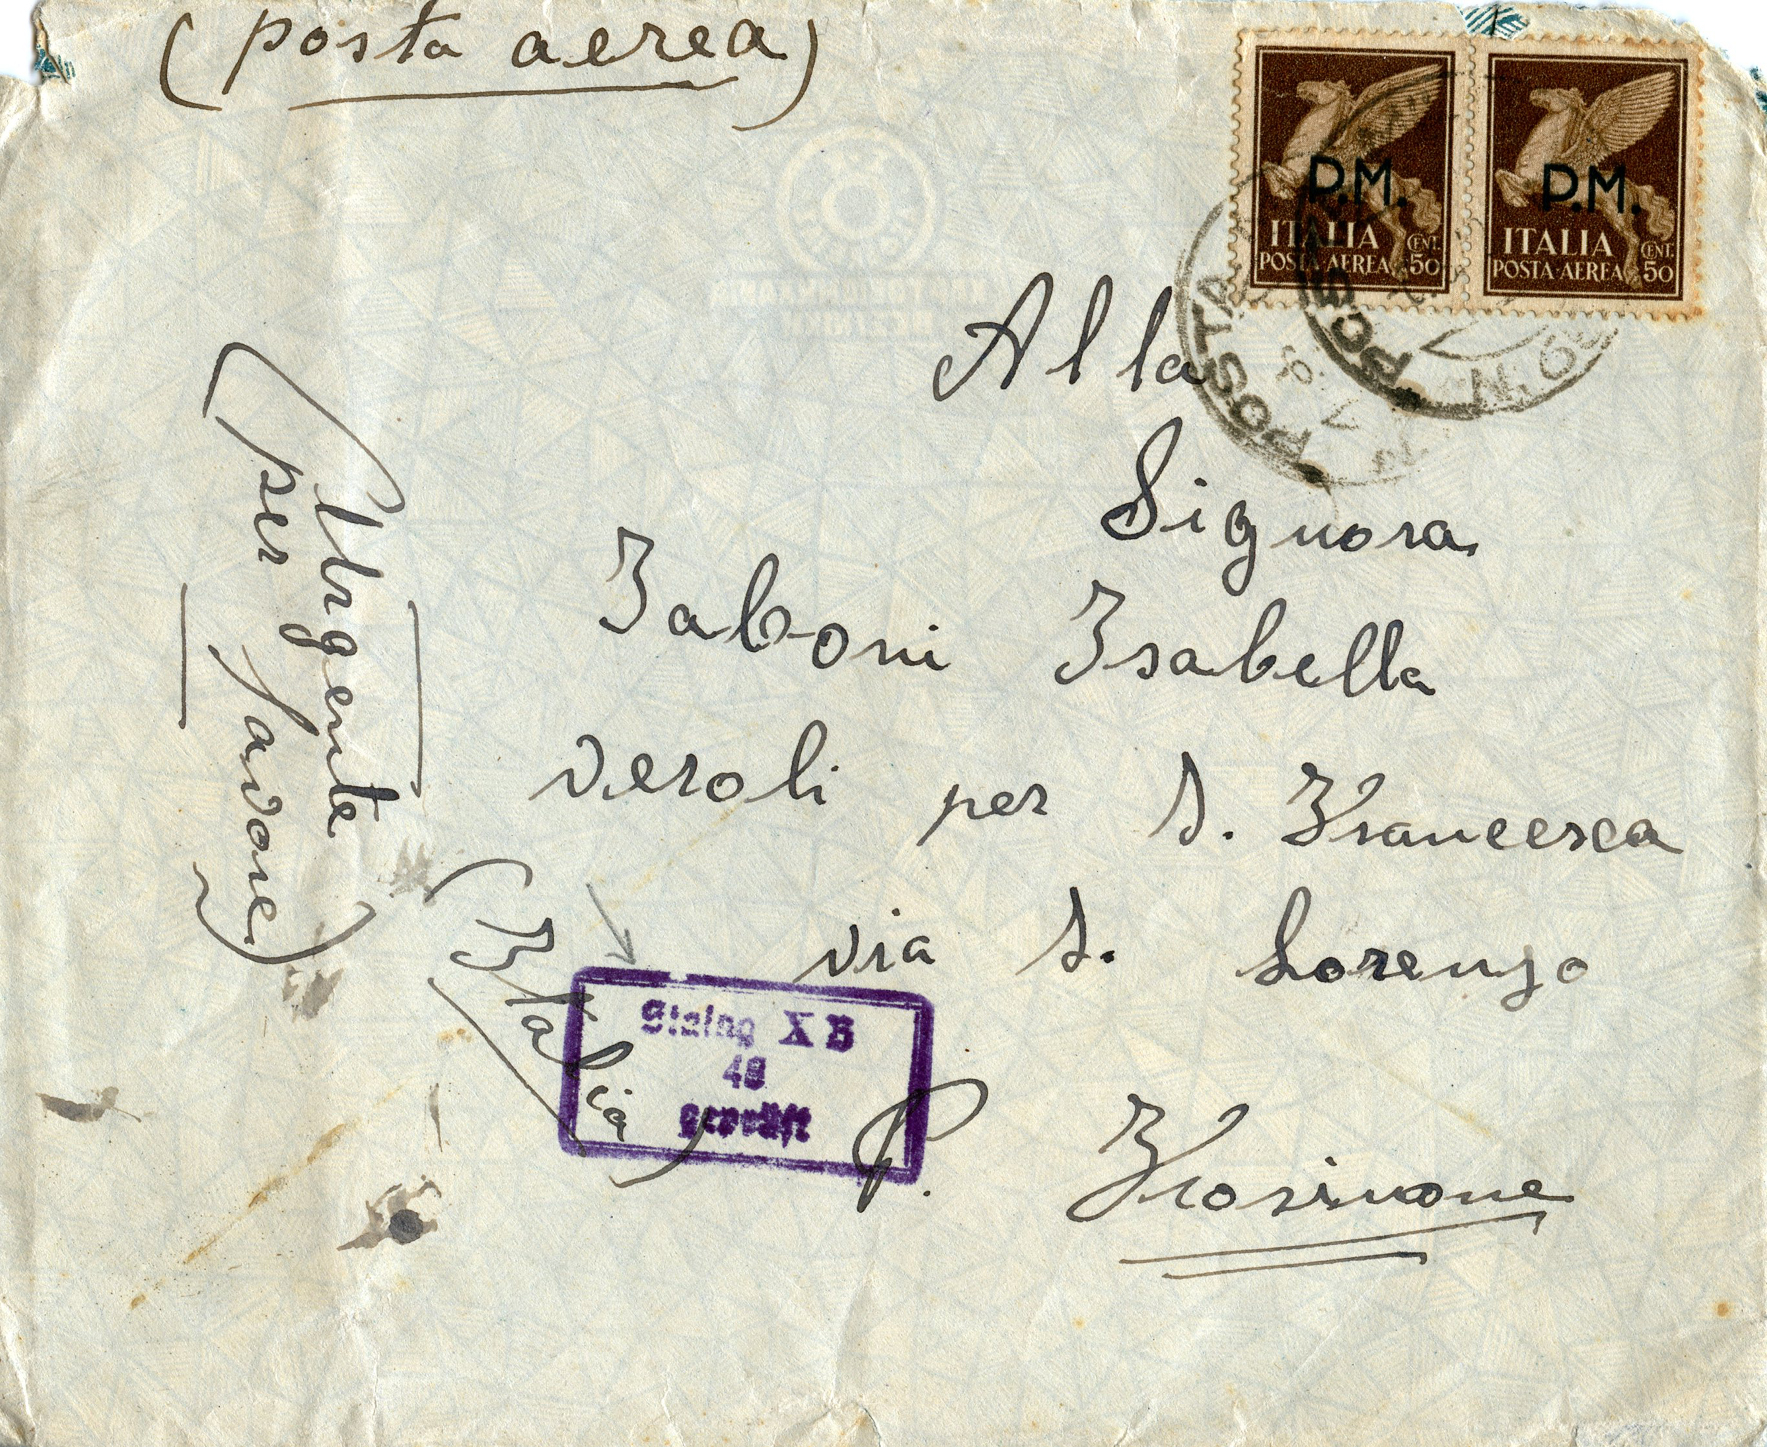 (posta aerea)
P.M.
ITALIA
POSTA AEREA
CENT. 50
P.M.
ITALIA
POSTA AEREA
CENT. 50
POSTA
Alla
Signora
Zaboni Isabella
Veroli per S. Francesca
via S. Lorenzo
P. Frosinone
(Italia)
(per favore)
Urgente
Stalag X B
48
geprüft